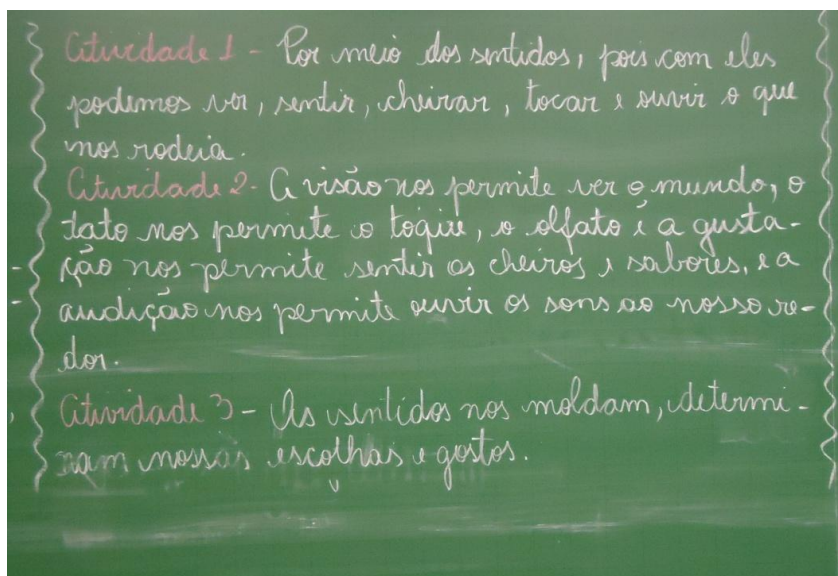 Atividade 1 - Por meio dos sentidos, pois com eles
podemos ver, sentir, cheirar, tocar e ouvir o que
nos rodeia.
Atividade 2 - A visão nos permite ver o mundo, o
tato nos permite o toque, o olfato e a gusta-
ção nos permite sentir os cheiros e sabores, e a
audição nos permite ouvir os sons ao nosso re-
dor.
Atividade 3 - Os sentidos nos moldam, determi-
nam nossas escolhas e gostos.